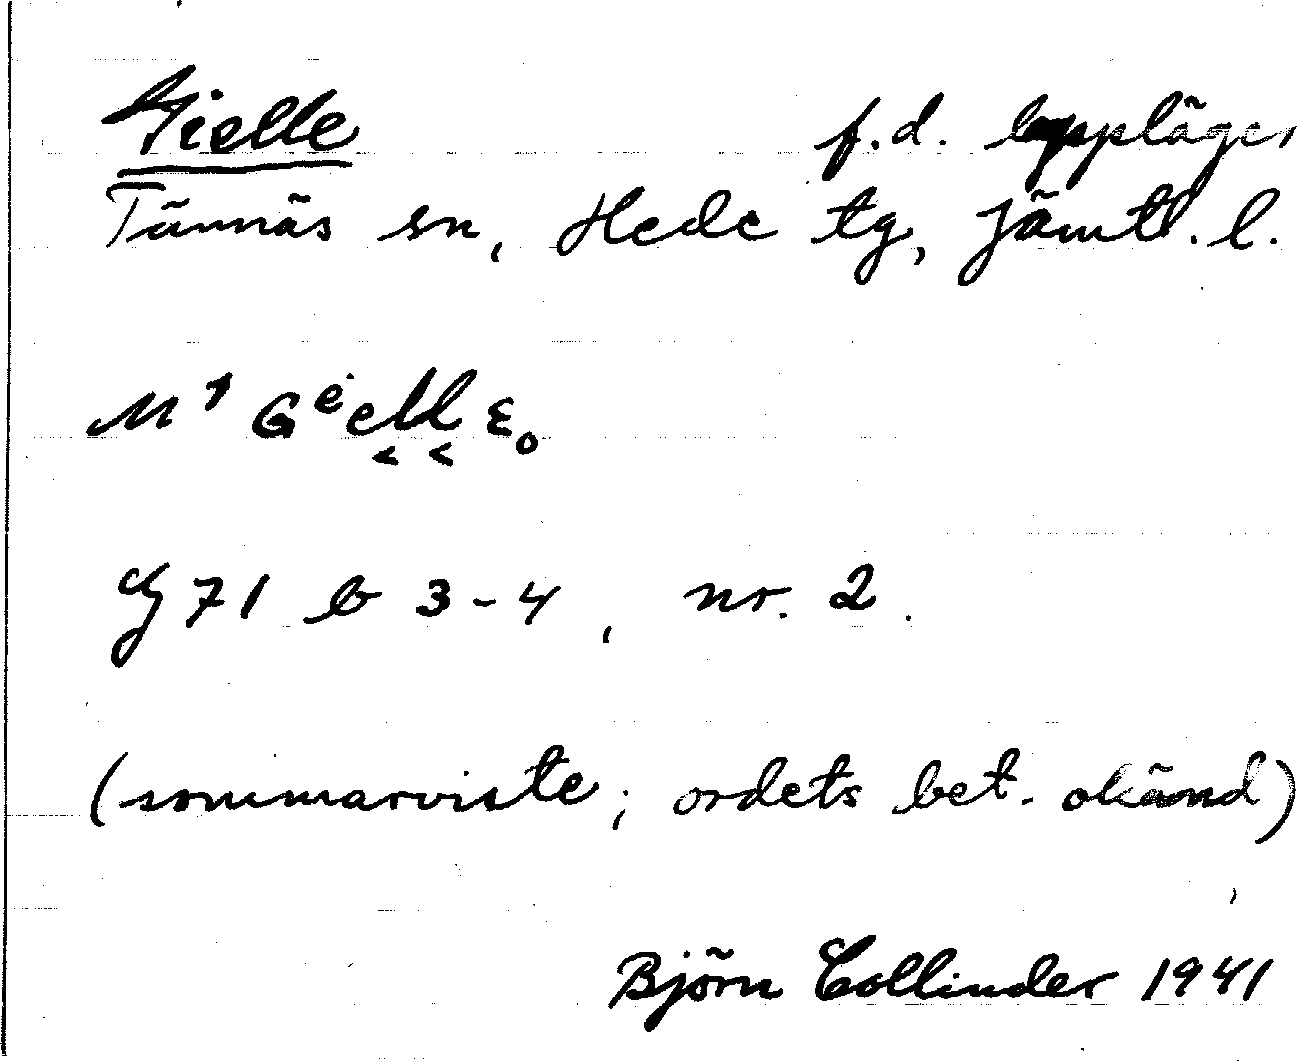 Gielle f.d. lappläger
Tännäs sn, Hede tg, Jämtl. l.
nr. 2.
(sommarviste; ordets bet. okänd)
Björn Collinder 1941